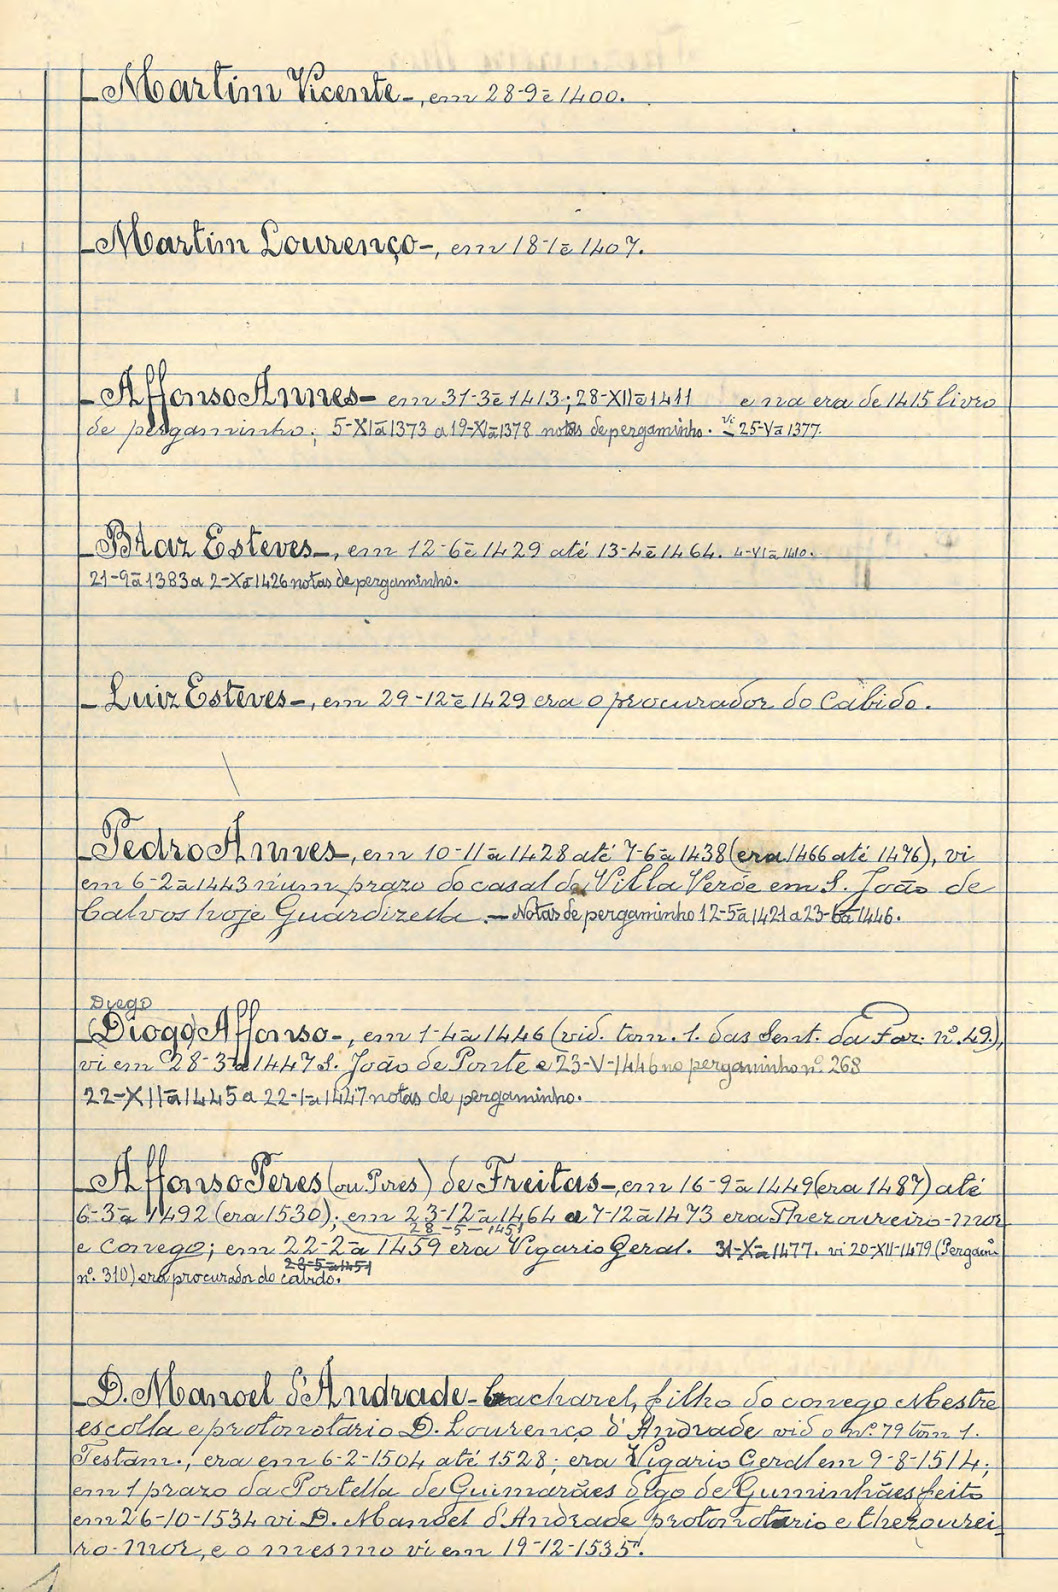 - Martim Vicente -, em 28-9ē 1400.
- Martim Lourenço -, em 18-1ē 1407.
- Affonso Annes - em 31-3ē 1413; 28-XII ā 1411 e na era de 1415 livro
de pergaminho; 5-XI ā 1373 a 19-XI ā 1378 notas de pergaminho. vi 25-V ā 1377.
- Braz Esteves -, em 12-6ē 1429 até 13-4ē 1464. 4-VI ā 1410.
21-9ā 1383 a 2-X ā 1426 notas de pergaminho.
- Luiz Esteves -, em 29-12ē 1429 era o procurador do Cabido.
- Pedro Annes -, em 10-11ā 1428 até 7-6ā 1438 (era 1466 até 1476), vi
em 6-2ā 1443 n'um prazo do casal de Villa Verde em S. João de
Calvos hoje Guardizella. - Notas de pergaminho 12-5ā 1421 a 23-6ā 1446.
Diego
- (Diogo) Affonso -, em 1-4ā 1446 (vid. tom. 1. das Sent. da Faz. nº. 49),
vi em 28-3ā 1447 S. João de Ponte e 23-V-1446 no pergaminho nº. 268
22-XII ā 1445 a 22-1ā 1447 notas de pergaminho.
- Affonso Peres (ou Pires) de Freitas -, em 16-9ā 1449 (era 1487) até
6-3ā 1492 (era 1530); em 23-12ā 1464 a 7-12ā 1473 era Thezoureiro-mor
28-5-1451
e conego; em 22-2ā 1459 era Vigario Geral. 31-X ā 1477. vi 20-XII-1479 (Pergamº.
28-5ā 1451
nº. 310) era procurador do cabido.
- D. Manoel d'Andrade - bacharel, filho do conego Mestre
escolla e protonotário D. Lourenço d'Andrade vid o nº. 79 tom 1.
Testam., era em 6-2-1504 até 1528; era Vigario Geral em 9-8-1514;
em 1 prazo da Portella de Guimarães digo de Guminhães feito
em 26-10-1534 vi D. Manoel d'Andrade protonotario e thezourei-
ro-mor, e o mesmo vi em 19-12-1535.